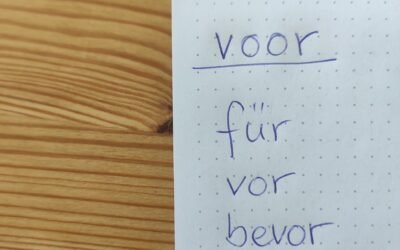 voor
für
vor
bevor